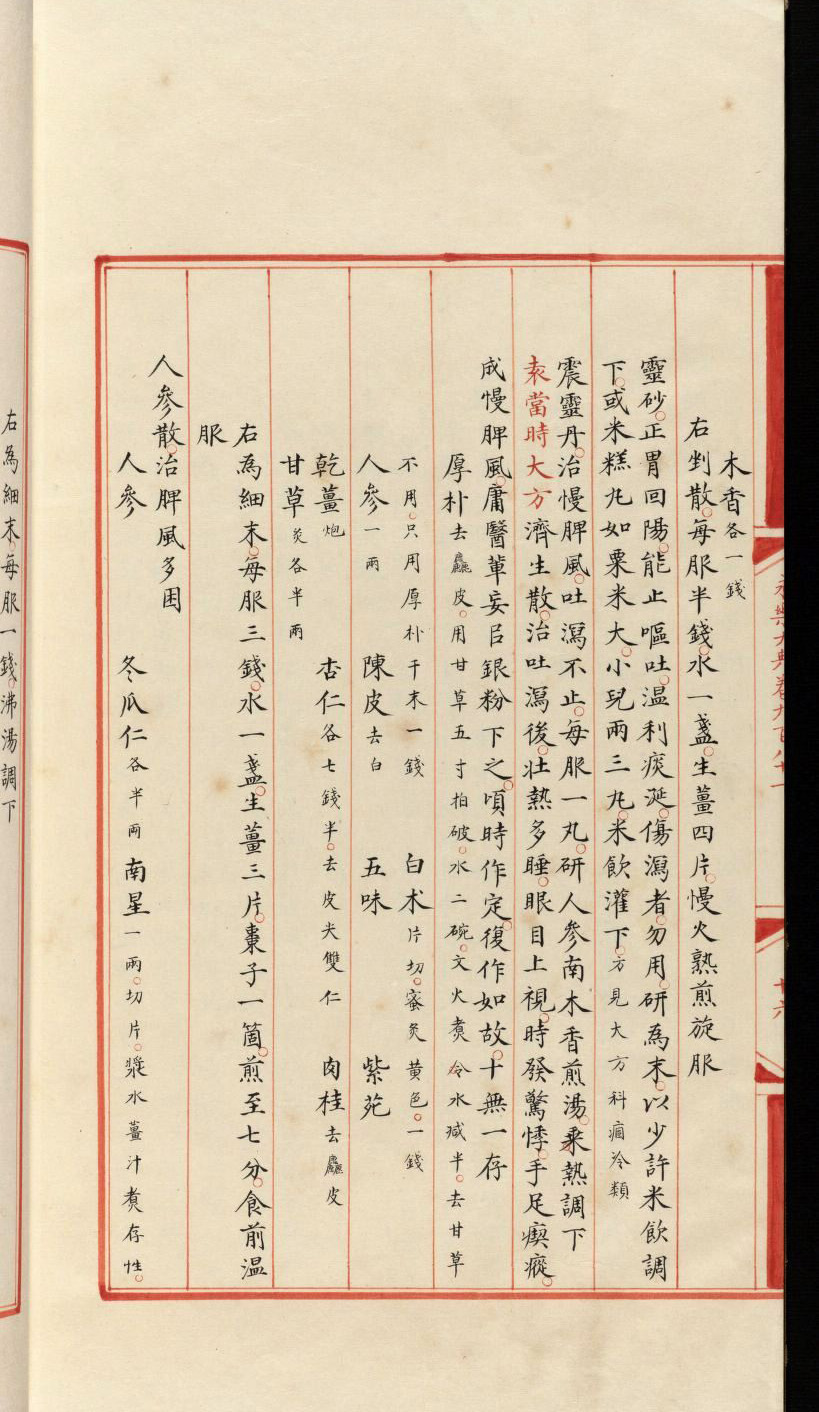 永樂大典卷九百八十一
十六
木香各一錢
右剉散。每服半錢。水一盞。生薑四片。慢火熟煎旋服
靈砂。正胃回陽。能止嘔吐。溫利痰涎。傷瀉者。勿用。研為末。以少許米飲調
下。或米糕丸如粟米大。小兒兩三丸。米飲灌下。方見大方科痼冷類
震靈丹。治慢脾風。吐瀉不止。每服一丸。研人參南木香煎湯。乘熱調下
袁當時大方 濟生散。治吐瀉後。壯熱多睡。眼目上視。時發驚悸。手足瘈瘲。
成慢脾風。庸醫輩妄㠯銀粉下之。頃時作定。復作如故。十無一存
厚朴去麤皮。用甘草五寸拍破。水二碗。文火煑。令水減半。去甘草
不用。只用厚朴干末一錢 白术片切。蜜炙黃色。一錢
人參一兩 陳皮去白 五味 紫菀
乾薑炮 杏仁各七錢半。去皮尖雙仁 肉桂去麤皮
甘草炙各半兩
右為細末。每服三錢。水一盞。生薑三片。棗子一箇。煎至七分。食前溫
服
人參散。治脾風多困
人參 冬瓜仁各半兩 南星一兩。切片。漿水薑汁煑存性。
右為細末。每服一錢。沸湯調下